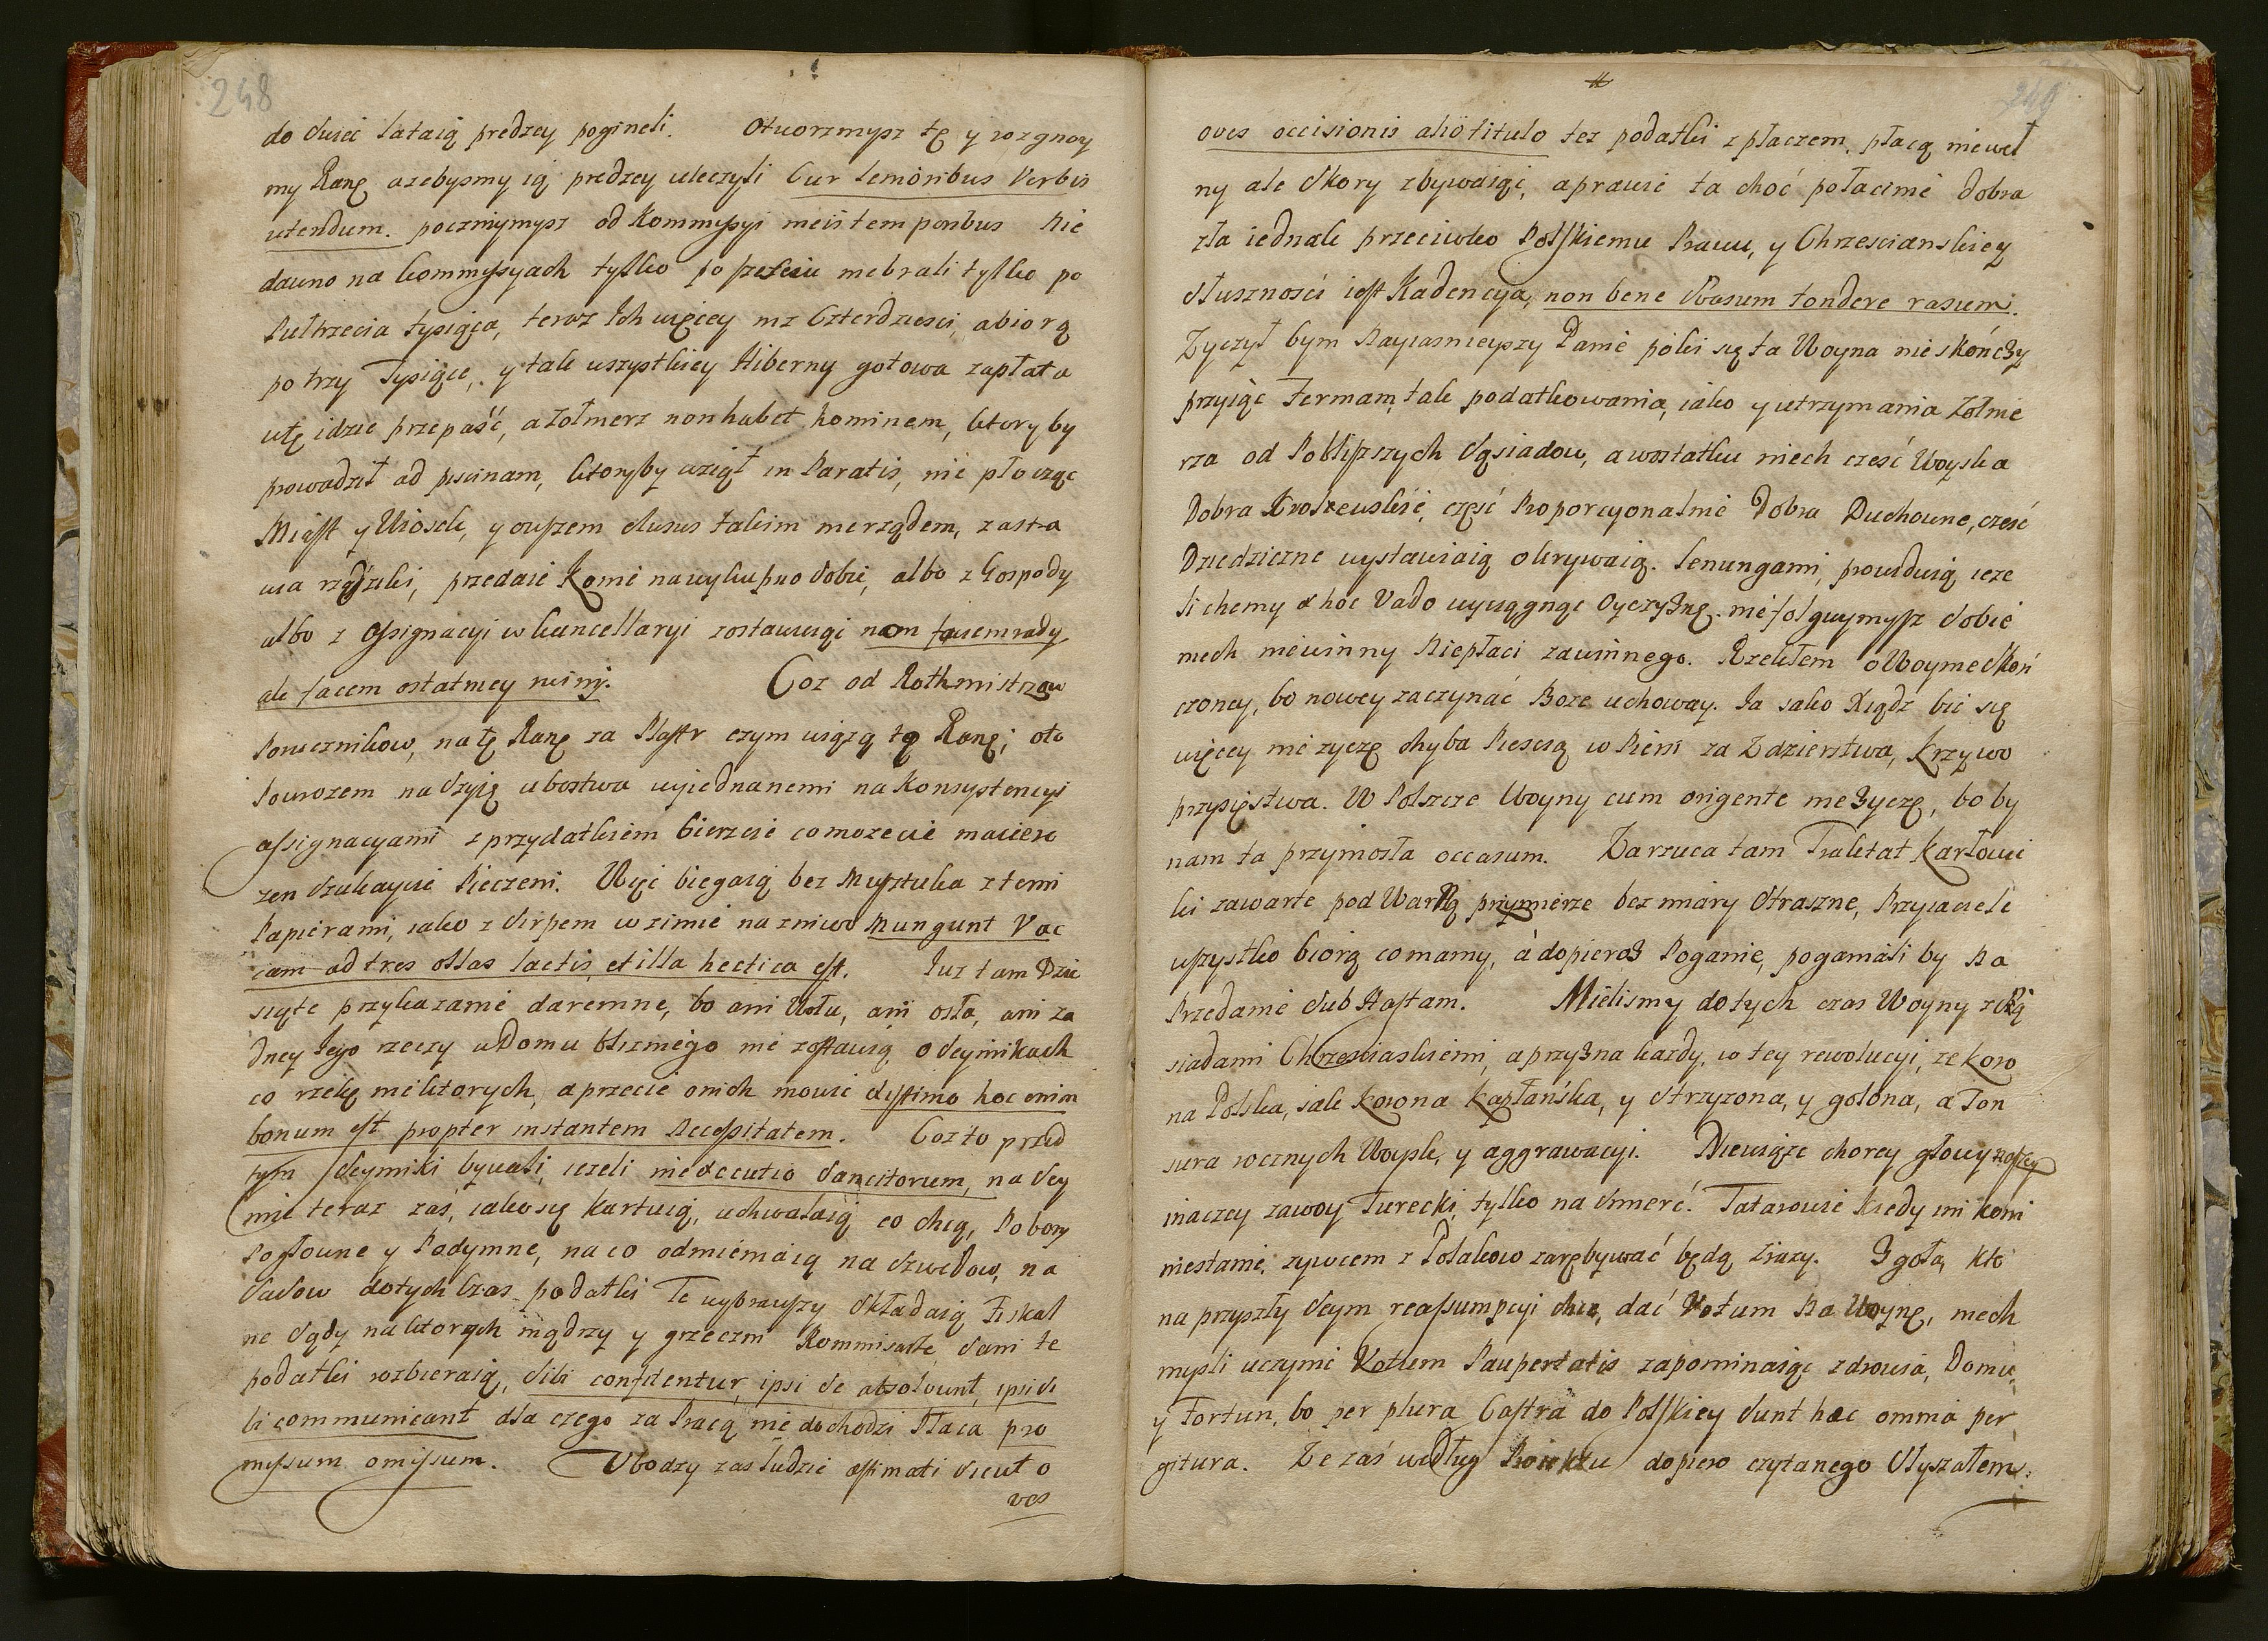 248
do sieci lataią prędzey pogineli. Otworzmysz tę y rozgnoy
my Ranę azebysmy ią prędzey uleczyli Cur lenioribus Verbis
utendum. poczniymysz od Kommyssyi meis temporibus Nie
dawno na kommyssyach tylko po niebrali tylko po
Pułtrzecia tysiąca, teraz Ich więcey niz Czterdziesci, a biorą
po trzy Tysiące, y tak wszystkiey Hiberny gotowa zapłata
wtę idzie przepaść, a żołnierz non habet hominem, ktory by
prowadził ad piscinam, ktoryby wziął in Paratis, nie płocząc
Miast y Wiosek, y owszem clusus takim nierządem, zasta
wia rządziki, przedaie Konie na wykupno sobie, albo z Gospody
albo z Assignacyi w kancellaryi zostawuiąc nam rady
ale facem ostatniey ruiny. Coz od Rothmistrzow
Poruczników, na tę Ranę za Plastr czym wiążą tę Ranę; oto
Powrozem na szyię ubostwa wyiednanemi na Konsystencyi
assignacyami z przydatkiem bierzcie co mozecie macierz
zen szukaycie Pieczeni. Więc biegaią bez Musztuka z temi
Papierami, iako z sirpem w zimie na zniwo Mungunt Vac
cam ad tres ollas lactis, et illa hectica est. Iuz tam Dzie
siąte przykazanie daremne, bo ani Wołu, ani osła, ani za
dney Iego rzeczy u Domu blizniego nie zostawią, o seymikach
co rzekę niektorych, a przecie o nich mowić existimo hoc enim
bonum est propter instantem Necessitatem. Coz to przed
tym seymiki bywali, iezeli nie executio sancitorum, na sey
mie teraz zaś, iako się kartuią, uchwalaią co chcą, Pobory
Pogłowne y Podymne, na co odmieniaią na szwedow, na
Sasow dotych Czas podatki Te wybrawszy składaią Fiskal
ne sądy na ktorych mądrzy y grzeczni Kommisarze sami te
podatki rozbieraią, sibi confitentur, ipsi se absolvunt, ipsi si
bi communicant dla czego za Pracą nie dochodzi Płaca pro
missum omissum. Ubodzy zas ludzie æstimati sicut o
ves
249
oves occisionis alio titulo tez podatki z płaczem, płacą nie weł
ny ale skory zbywaiąc, a prawie ta choć połacinie dobra
zła iednak przeciwko Polskiemu Prawu, y Chrzescianskiey
słusznosci iest Kadencya, non bene rasum tondere rasum.
Zyczył bym Nayiasnieyszy Panie póki się ta Woyna nieskończy
przyiąc Formam, tak podatkowania, iako y utrzymania Zolnie
rza od Poblizszych sąsiadow, a wostatku niech czesć Woyska
Dobra Krolrewskie, część Proporcyonalnie Dobra Duchowne, część
Dziedziczne wystawiaią okrywaią. Lenungami, prowiduią, ieze
li chemy ex hoc Vado wyciągnąc Oyczyznę. niefolguymysz sobie
niech niewinny Niepłaci zawinnego. Rzekłem o Woynie skoń
czoney, bo nowey zaczynać Boze uchoway. Ia iako Xiądz bic się
więcey nie zyczę chyba Piescią w Piersi za Zdzierstwa, Krzywo
przysięstwa. W Polszcze Woyny cum origente nie zyczę, bo by
nam ta przyniosła occasum. Zarzuca tam Traktat Karłowi
cki zawarte pod Warką przymierze bez miary straszne, Przyiaciele
wszystko biorą co mamy, a dopieroz Poganie, pogamali by na
Przedanie sub Hastam. Mielismy do tych czas Woyny z są
siadami Chrzesciaskiemi, a przyzna kazdy, w tey rewolucyi, ze Koro
na Polska, iak Korona Kapłańska, y strzyzona, y golona, a Ton
sura rocznych Woysk, y aggrawacyi. Niewiąże chorey głowy naszey
inaczey zawoy Turecki, tylko na smierć. Tatarowie kiedy im koni
niestanie, zywcem z Polakow zarębywać będą zrazy. Zgoła, kto
na przyszły seym reassumpcyi chce, dać Votum na Woynę, niech
mysli uczynić Votum Paupertatis zapominaiąc zdrowia, Domu,
y Fortun, bo per plura Castra do Polskiey sunt hæc omnia per
gitura. Ze zaś według Proiektu dopiero czytanego słyszałem.